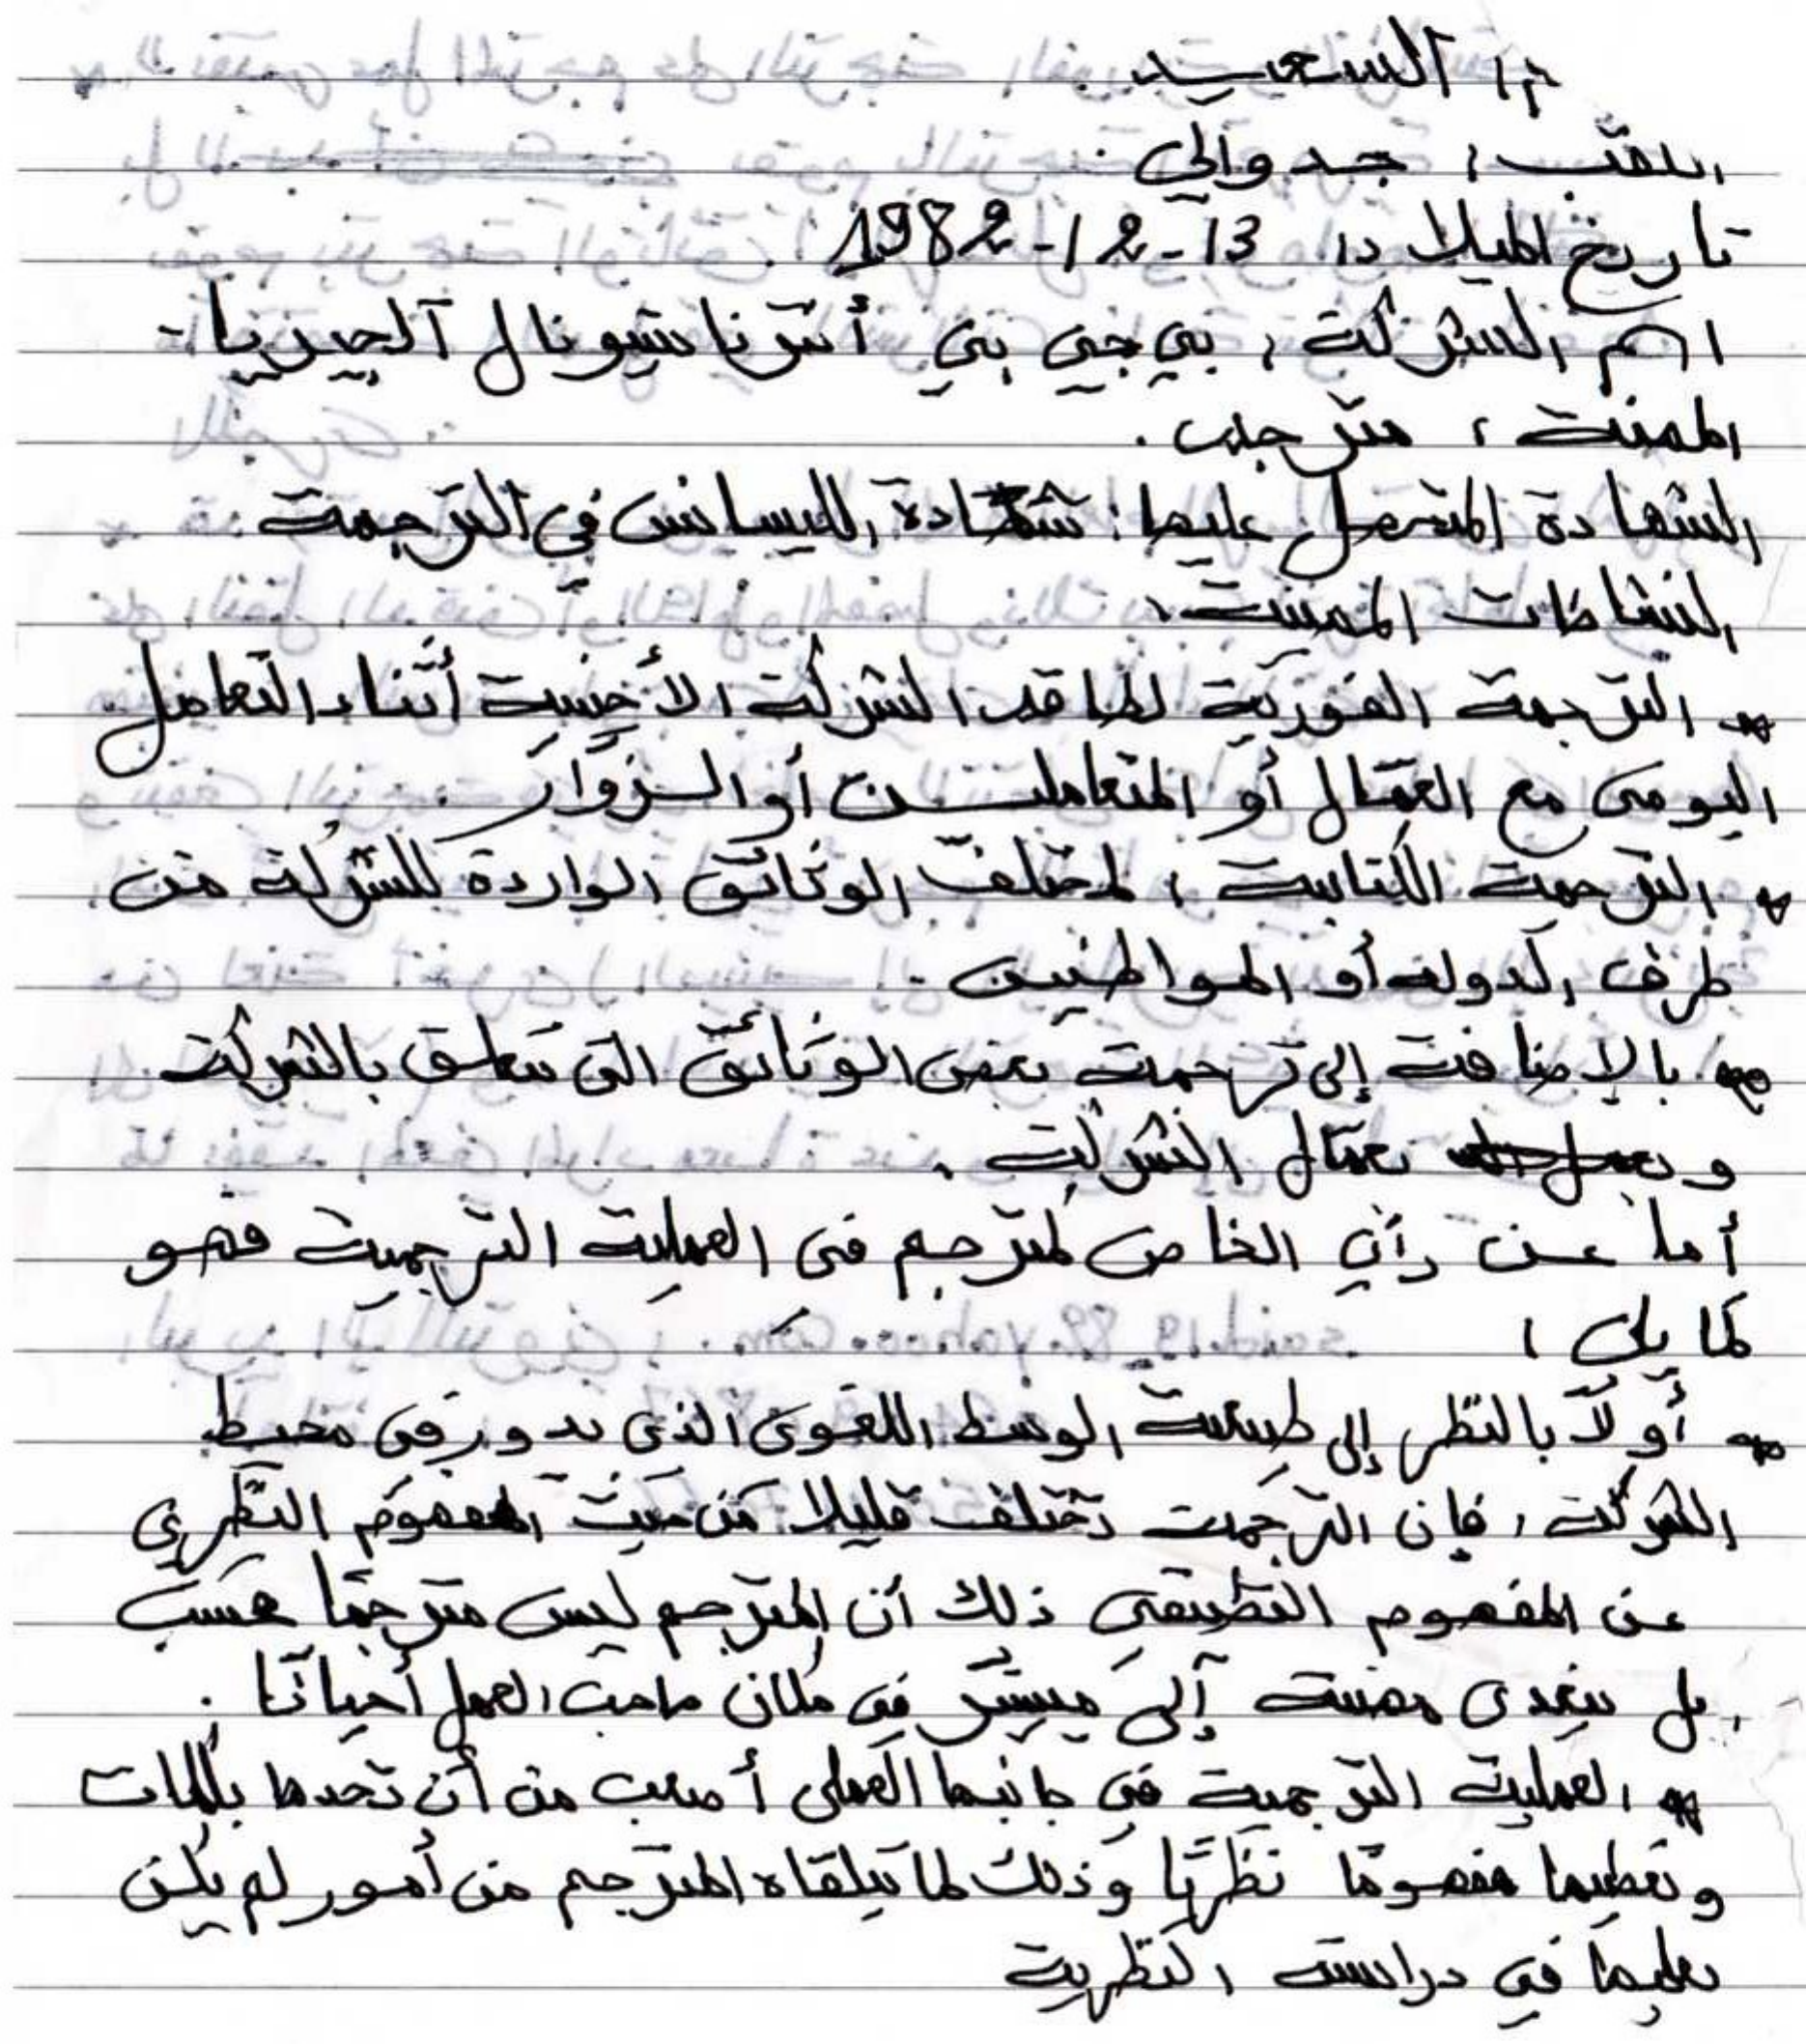 السعيد
اللقب: جدوالي
تاريخ الميلاد: 13-12-1982
اسم الشركة: بي جي بي أنترناسيونال آلجيريا-
المهنة: مترجم.
الشهادة المتحصل عليها: شهادة الليسانس في الترجمة
النشاطات المهنية:
* الترجمة الفورية لطاقم الشركة الأجنبية أثناء التعامل
اليومي مع العمال أو المتعاملين أو الزوار.
* الترجمة الكتابية: لمختلف الوثائق الواردة للشركة من
طرف الدولة أو المواطنين -
* بالإضافة إلى ترجمة بعض الوثائق التي تتعلق بالشركة
و بعمال الشركة.
أما عن رأي الخاص كمترجم في العملية الترجمية فهو
كما يلي:
* أولاً بالنظر إلى طبيعة الوسط اللغوي الذي يدور في محيط
الشركة، فإن الترجمة تختلف قليلا من حيث المفهوم النظري
عن المفهوم التطبيقي ذلك أن المترجم ليس مترجمًا فحسب
بل يتعدى مهنته إلى مسير في مكان صاحب العمل أحيانًا.
* العملية الترجمية في جانبها العملي أصعب من أن نحدها بكلمات
ونعطيها مفهومًا نظريًا وذلك لما يتلقاه المترجم من أمور لم يكن
يعلمها في دراسته النظرية